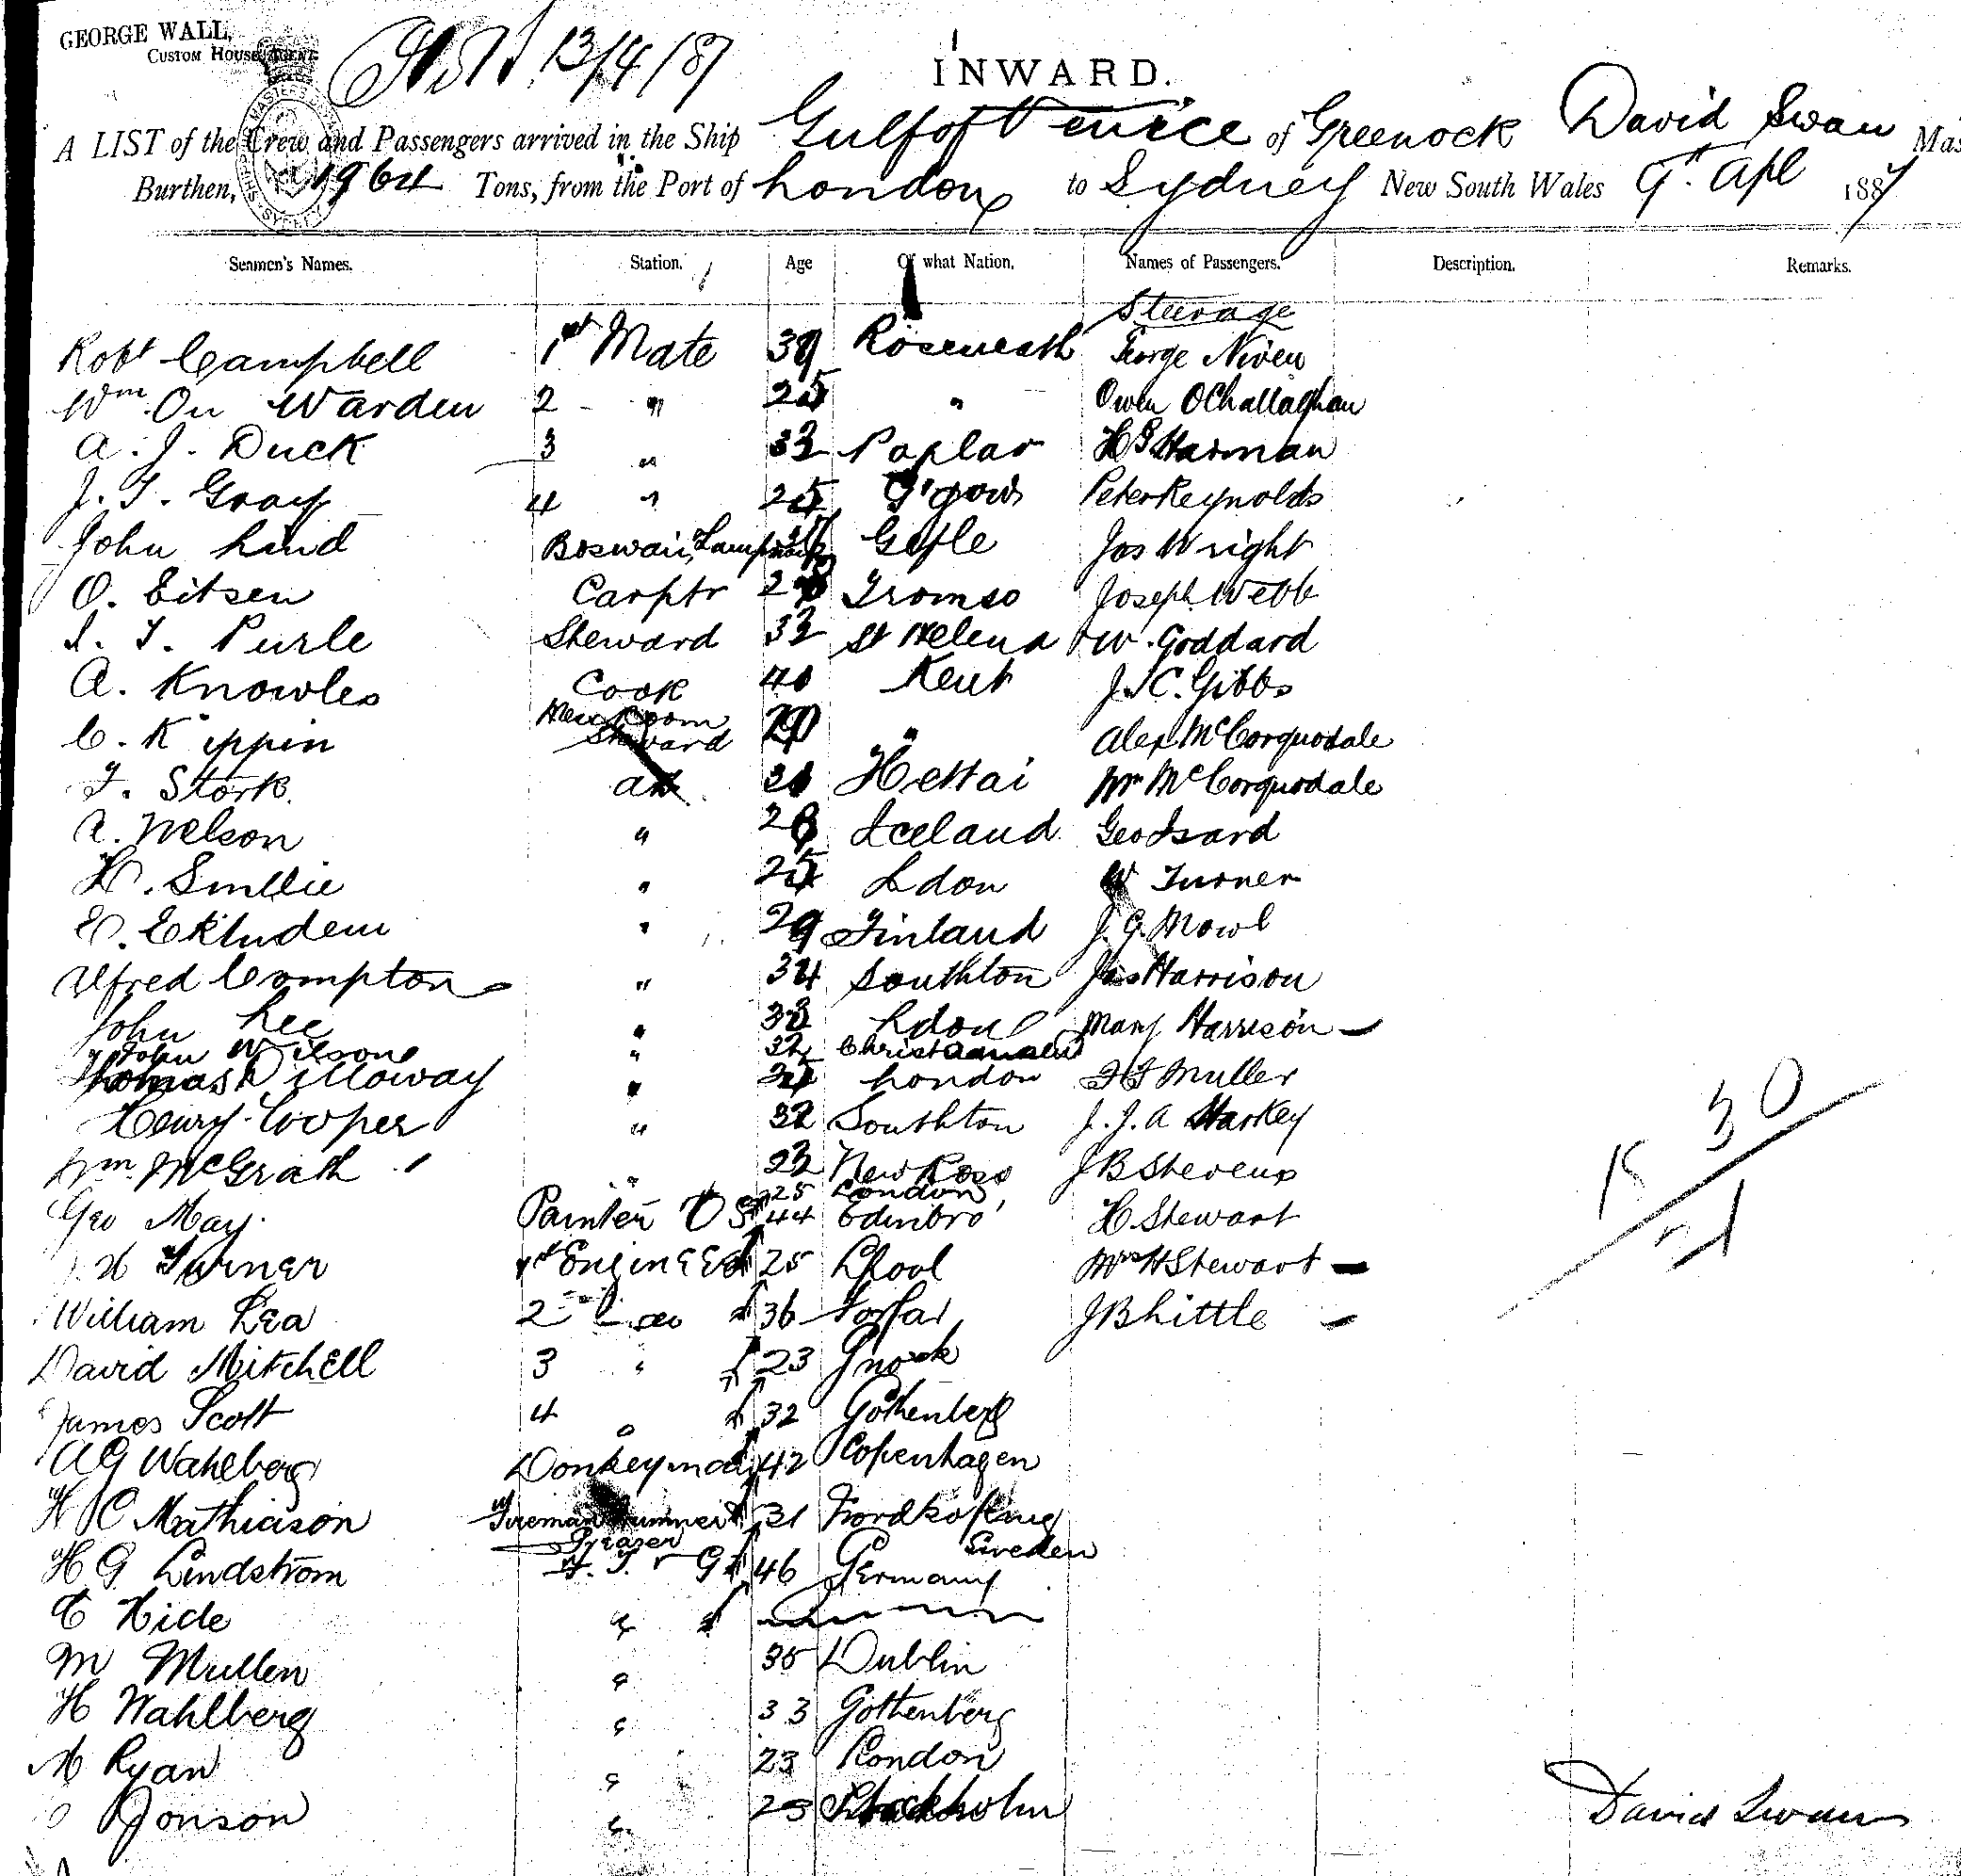 GEORGE WALL,
CUSTOM HOUSE AGENT
13/4/87
INWARD.
A LIST of the Crew and Passengers arrived in the Ship Gulf of Venice of Greenock David Swan Mas
Burthen, 1964 Tons, from the Port of London to Sydney New South Wales 9th Apl 1887
Seamen's Names. Station. Age Of what Nation. Names of Passengers. Description. Remarks.
Steerage
Robt Campbell 1st Mate 39 Roseneath George Niven
Wm Warden 2 " 25 " Owen OChallaghan
A. J. Duck 3 " 32 Poplar H Harman
J. T. Gray 4 " 25 G'gow Peter Reynolds
John Lind Boswain Gefle Jas Wright
O. Eitsen Carptr 28 Tromso Joseph Webb
Purle Steward 32 St Helena W. Goddard
A. Knowles Cook 40 Kent J. C. Gibbs
C. Kippin Mess Room Steward " Alex McCorquodale
T. Stork AB Wm McCorquodale
Nelson " 28 Iceland Geo Isard
H. Smllie " 25 Ldon W Turner
" 29 Finland J. G. Mowl
Alfred Compton " 34 Southton Jas Harrison
John Lee " Ldon Mary Harrison
John Wilson " 32
Thomas Dilloway " London Muller
Henry Cooper " 32 Southton J. J. A Harkey
Wm McGrath " New Ross J B Stevens
Geo May 25 London
Painter 44 Edinbro' H Stewart
Turner 1st Engineer 25 Lpool Mrs H Stewart
William Lea 2nd do 36 Forfar J B Little
David Mitchell 3 " 23 Gnock
James Scott 4 " 32 Gothenberg
A G Wahlberg Donkeyman 42 Copenhagen
H C Mathiason Fireman Trimmer 31 Nordkoping
Greaser Sweden
H G Lindstrom F. T & G 46 Germany
C Hide "
M Mullen " 35 Dublin
H Wahlberg " 33 Gothenberg
M Ryan " 23 London
Jonson " 23 Stockholm
30
David Swan